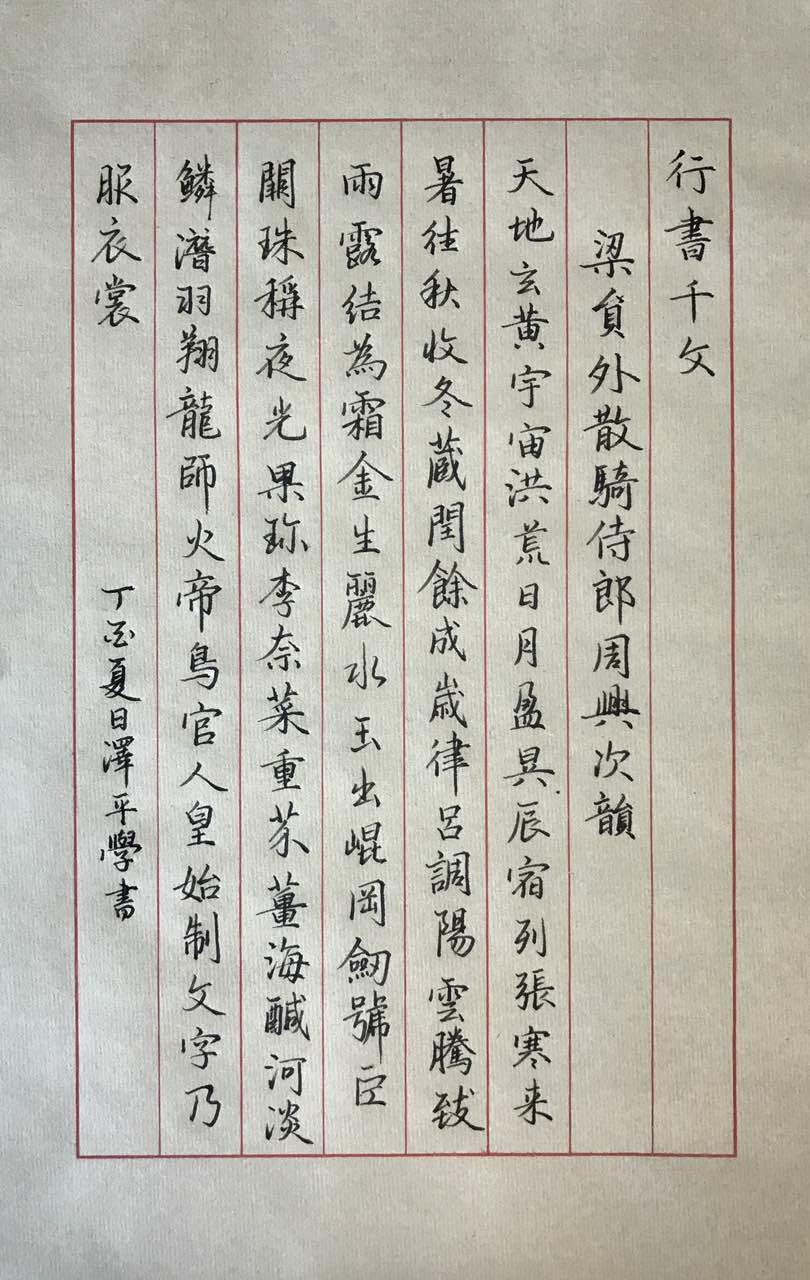 行書千文
梁貟外散騎侍郎周興次韻
天地玄黄宇宙洪荒日月盈昃辰宿列張寒来
暑往秋收冬蔵閏餘成歲律呂調陽雲騰致
雨露結為霜金生麗水玉出崐岡劒號巨
闕珠稱夜光果珎李柰菜重芥薑海醎河淡
鱗潛羽翔龍師火帝鳥官人皇始制文字乃
服衣裳
丁酉夏日澤平學書